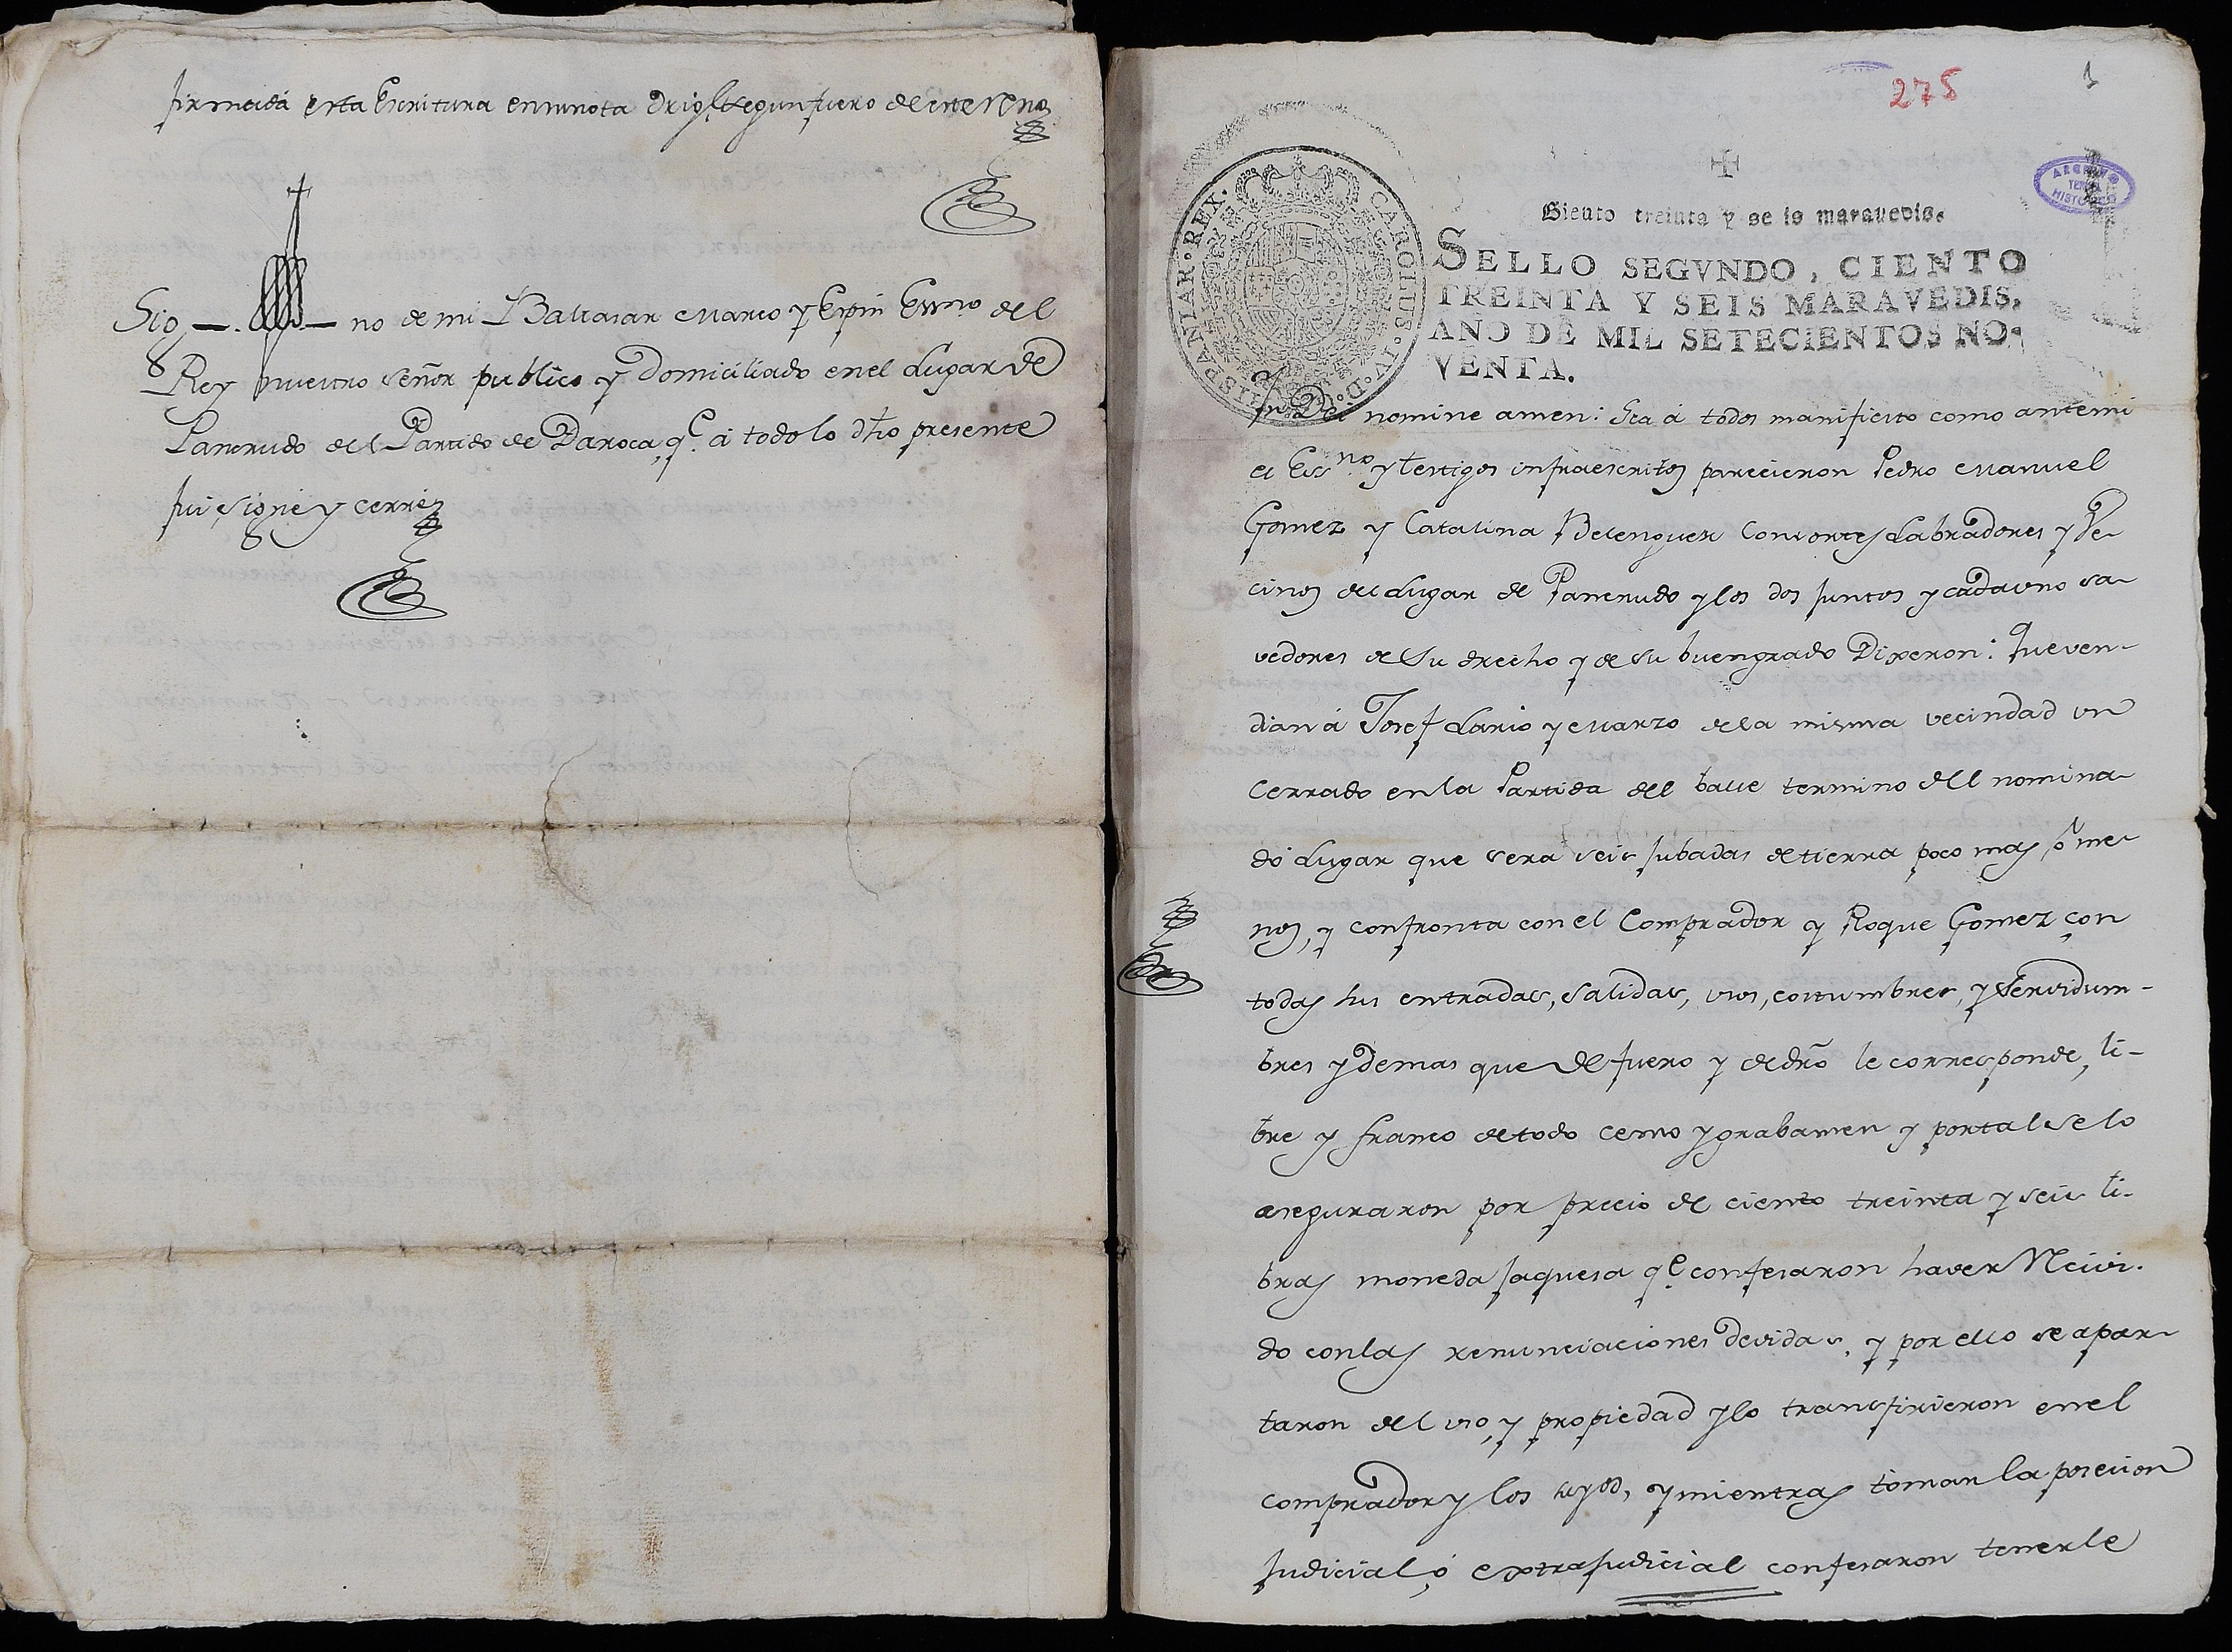 firmada esta Escritura en mi nota orig.l segun fuero de este reno
Sig — no de mi Baltasar Marco y Espin Essno del
Rey nuestro Señor publico y Domiciliado en el Lugar de
Pancrudo del Partido de Daroca, q.e a todo lo dho presente
fui, signé y cerré
275
1
ARCHIVO
HISTO
Ciento treinta y seis maravedis.
SELLO SEGVNDO, CIENTO
TREINTA Y SEIS MARAVEDIS,
AÑO DE MIL SETECIENTOS NO-
VENTA.
CAROLUS·IV·D·G·HISPANIAR·REX·
In Dei nomine amen: Sea á todos manifiesto como antemi
el Ess.no y testigos infraescritos parecieron Pedro Manuel
Gomez y Catalina Belenguer Consortes Labradores y Ve-
cinos del Lugar de Pancrudo y los dos juntos y cada uno sa-
vedores de su drecho y de su buengrado Dixeron: Que ven-
dian á Josef Lario y Marzo de la misma vecindad un
Cerrado en la Partida del balle termino del nomina-
do Lugar que sera seis jubadas de tierra poco mas, ó me-
nos, y confronta con el Comprador y Roque Gomez con
todas sus entradas, salidas, usos, costumbres, y servidum-
bres y demas que de fuero y de dro le corresponde, li-
bre y franco de todo censo y grabamen y por tal se lo
aseguraron por precio de ciento treinta y seis li-
bras moneda jaquesa q.e confesaron haver Recivi-
do con las renunciaciones devidas, y por ello se apar-
taron del uso, y propiedad y lo transfirieron en el
comprador y los suyos, y mientras toman la posesion
judicial, ó extrajudicial confesaron tenerle